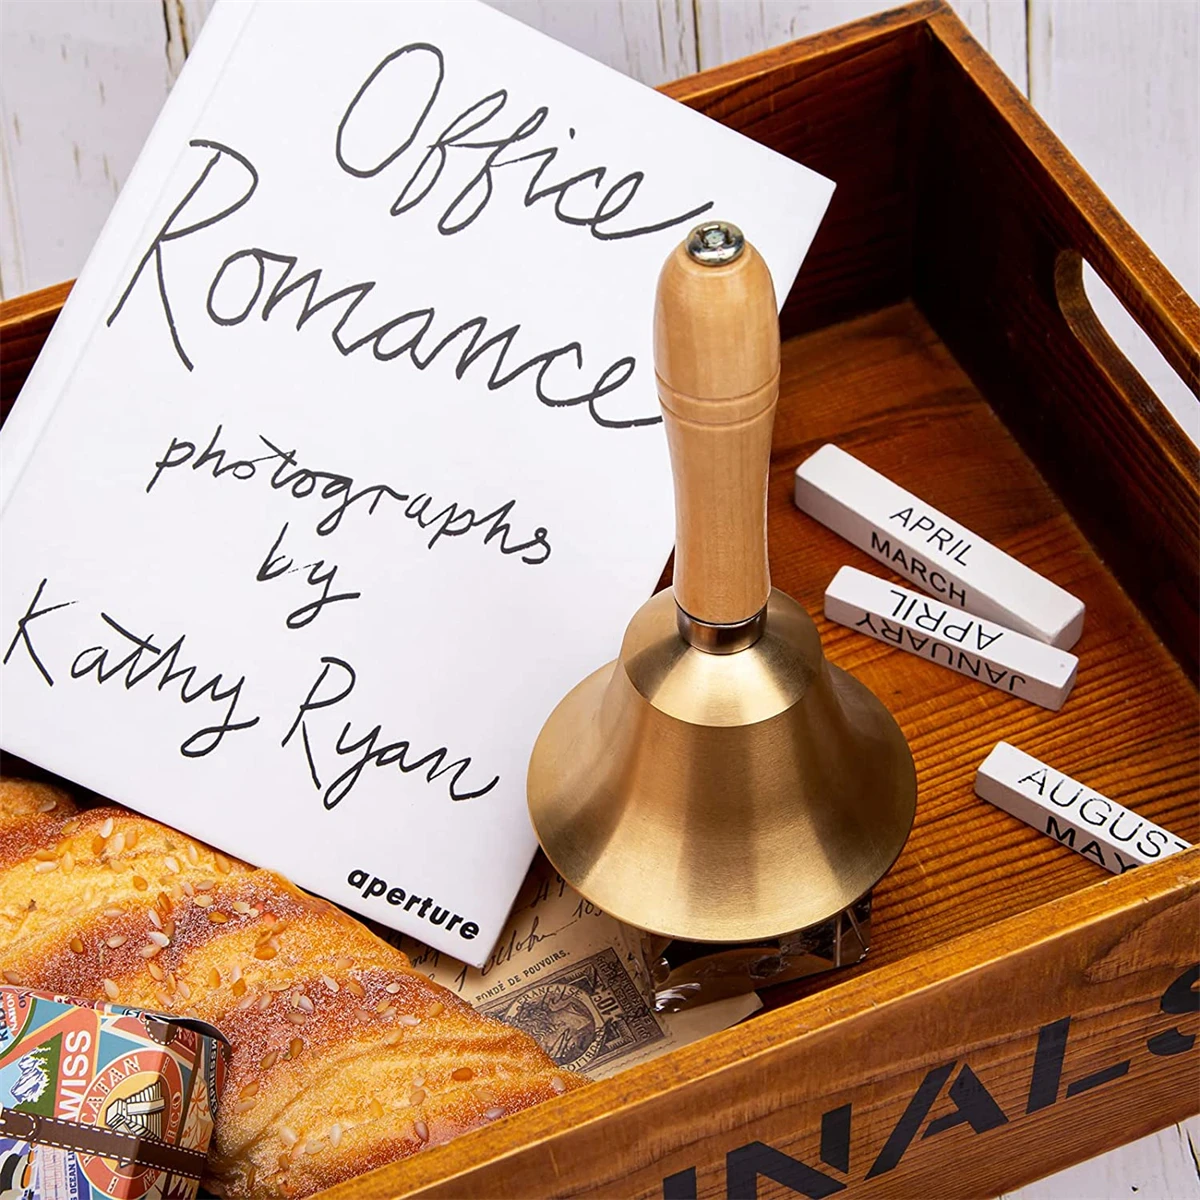 Office
Romance
photographs
by
Kathy Ryan
aperture
APRIL
MARCH
APRIL
JANUARY
AUGUST
MAY
FONDÉ DE POUVOIRS.
WISS
CATAN
INALS